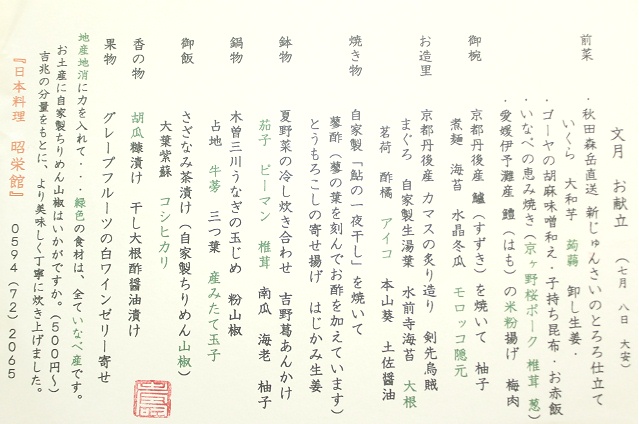 文月 お献立 (七月 八日 大安)
前菜
・秋田森岳直送 新じゅんさいのとろろ仕立て
いくら 大和芋 蒟蒻 卸し生姜・
・ゴーヤの胡麻味噌和え・子持ち昆布・お赤飯
・いなべの恵み焼き(京ヶ野桜ポーク 椎茸 葱)
・愛媛伊予灘産 鱧(はも)の米粉揚げ 梅肉
御椀
京都丹後産 鱸(すずき)を焼いて 柚子
煮麺 海苔 水晶冬瓜 モロッコ隠元
お造里
京都丹後産 カマスの炙り造り 剣先烏賊
まぐろ 自家製生湯葉 水前寺海苔 大根
茗荷 酢橘 アイコ 本山葵 土佐醤油
焼き物
自家製「鮎の一夜干し」を焼いて
蓼酢(蓼の葉を刻んでお酢を加えています)
とうもろこしの寄せ揚げ はじかみ生姜
鉢物
夏野菜の冷し炊き合わせ 吉野葛あんかけ
茄子 ピーマン 椎茸 南瓜 海老 柚子
鍋物
木曽三川うなぎの玉じめ 粉山椒
占地 牛蒡 三つ葉 産みたて玉子
御飯
さざなみ茶漬け(自家製ちりめん山椒)
大葉紫蘇 コシヒカリ
香の物
胡瓜糠漬け 干し大根酢醤油漬け
果物
グレープフルーツの白ワインゼリー寄せ
地産地消に力を入れて・・・緑色の食材は、全ていなべ産です。
お土産に自家製ちりめん山椒はいかがですか。(500円〜)
吉兆の分量をもとに、より美味しく丁寧に炊き上げました。
『日本料理 昭栄館』 0594(72)2065